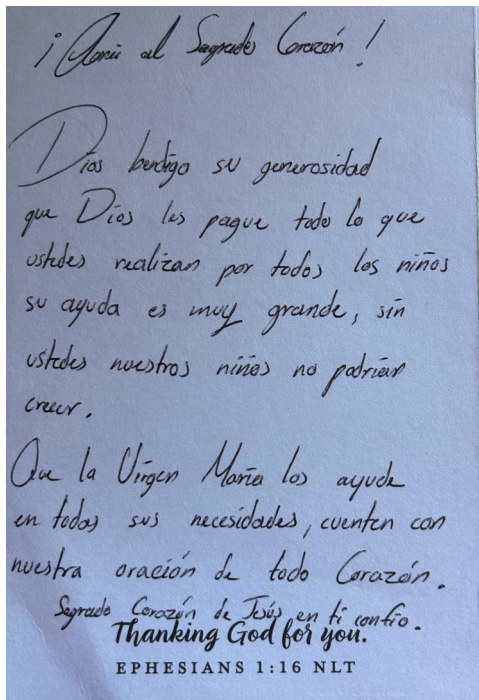 ¡Gloria al Sagrado Corazón!
Dios bendiga su generosidad
que Dios les pague todo lo que
ustedes realizan por todos los niños
su ayuda es muy grande, sin
ustedes nuestros niños no podrían
crecer.
Que la Virgen María los ayude
en todas sus necesidades, cuenten con
nuestra oración de todo Corazón.
Sagrado Corazón de Jesús en ti confío.
Thanking God for you.
EPHESIANS 1:16 NLT